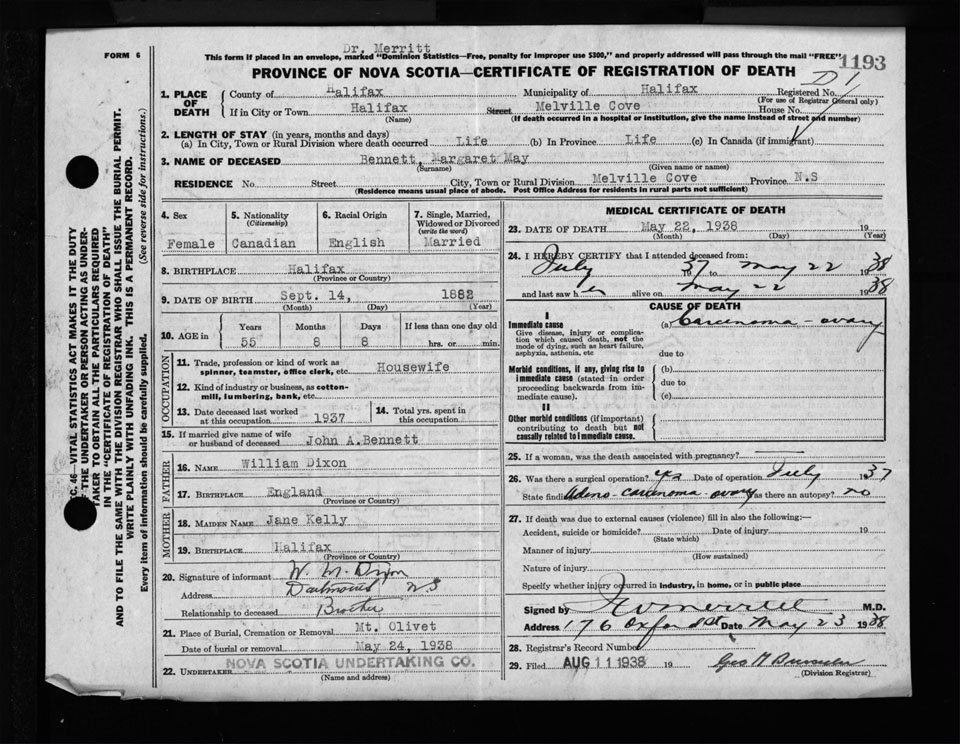 Dr. Merritt
FORM 6
This form if placed in an envelope, marked "Dominion Statistics—Free, penalty for improper use $300," and properly addressed will pass through the mail "FREE"
1193
PROVINCE OF NOVA SCOTIA—CERTIFICATE OF REGISTRATION OF DEATH
D 1
1. PLACE OF DEATH
County of Halifax Municipality of Halifax Registered No.
(For use of Registrar General only)
If in City or Town Halifax Street Melville Cove House No.
(Name) (If death occurred in a hospital or institution, give the name instead of street and number)
2. LENGTH OF STAY (in years, months and days)
(a) In City, Town or Rural Division where death occurred Life (b) In Province Life (c) In Canada (if immigrant)
3. NAME OF DECEASED Bennett, Margaret May
(Surname) (Given name or names)
RESIDENCE No. Street City, Town or Rural Division Melville Cove Province N.S
(Residence means usual place of abode. Post Office Address for residents in rural parts not sufficient)
4. Sex
Female
5. Nationality (Citizenship)
Canadian
6. Racial Origin
English
7. Single, Married, Widowed or Divorced (write the word)
Married
8. BIRTHPLACE Halifax
(Province or Country)
9. DATE OF BIRTH Sept. 14, 1882
(Month) (Day) (Year)
10. AGE in
Years Months Days If less than one day old
55 8 8 hrs. or min.
OCCUPATION
11. Trade, profession or kind of work as spinner, teamster, office clerk, etc. Housewife
12. Kind of industry or business, as cotton-mill, lumbering, bank, etc.
13. Date deceased last worked at this occupation 1937
14. Total yrs. spent in this occupation
15. If married give name of wife or husband of deceased John A. Bennett
FATHER
16. NAME William Dixon
17. BIRTHPLACE England
(Province or Country)
MOTHER
18. MAIDEN NAME Jane Kelly
19. BIRTHPLACE Halifax
(Province or Country)
20. Signature of informant W. M. Dixon
Address Dartmouth N.S
Relationship to deceased Brother
21. Place of Burial, Cremation or Removal Mt. Olivet
Date of burial or removal May 24, 1938
22. UNDERTAKER NOVA SCOTIA UNDERTAKING CO.
(Name and address)
MEDICAL CERTIFICATE OF DEATH
23. DATE OF DEATH May 22, 1938 19
(Month) (Day) (Year)
24. I HEREBY CERTIFY that I attended deceased from:
July 37 to May 22 1938
and last saw her alive on May 22 1938
CAUSE OF DEATH
I
Immediate cause (a) Carcinoma - ovary
Give disease, injury or complication which caused death, not the mode of dying, such as heart failure, asphyxia, asthenia, etc
due to
Morbid conditions, if any, giving rise to immediate cause (stated in order proceeding backwards from immediate cause).
(b)
due to
(c)
II
Other morbid conditions (if important) contributing to death but not causally related to immediate cause.
25. If a woman, was the death associated with pregnancy?
26. Was there a surgical operation? yes Date of operation July 37
State findings Adeno-carcinoma-ovary Was there an autopsy? no
27. If death was due to external causes (violence) fill in also the following:—
Accident, suicide or homicide? Date of injury 19
(State which)
Manner of injury
(How sustained)
Nature of injury
Specify whether injury occurred in industry, in home, or in public place
Signed by Merritt M.D.
Address 176 Oxford St Date May 23 1938
28. Registrar's Record Number
29. Filed AUG 11 1938 19
(Division Registrar)
C. 46—VITAL STATISTICS ACT MAKES IT THE DUTY
THE UNDERTAKER OR PERSON ACTING AS UNDER-
TAKER TO OBTAIN ALL THE PARTICULARS REQUIRED
IN THE "CERTIFICATE OF REGISTRATION OF DEATH"
AND TO FILE THE SAME WITH THE DIVISION REGISTRAR WHO SHALL ISSUE THE BURIAL PERMIT.
WRITE PLAINLY WITH UNFADING INK. THIS IS A PERMANENT RECORD.
Every item of information should be carefully supplied. (See reverse side for instructions.)